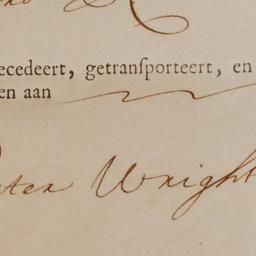 ecedeert, getranſporteert, en
en aan
eter Wright